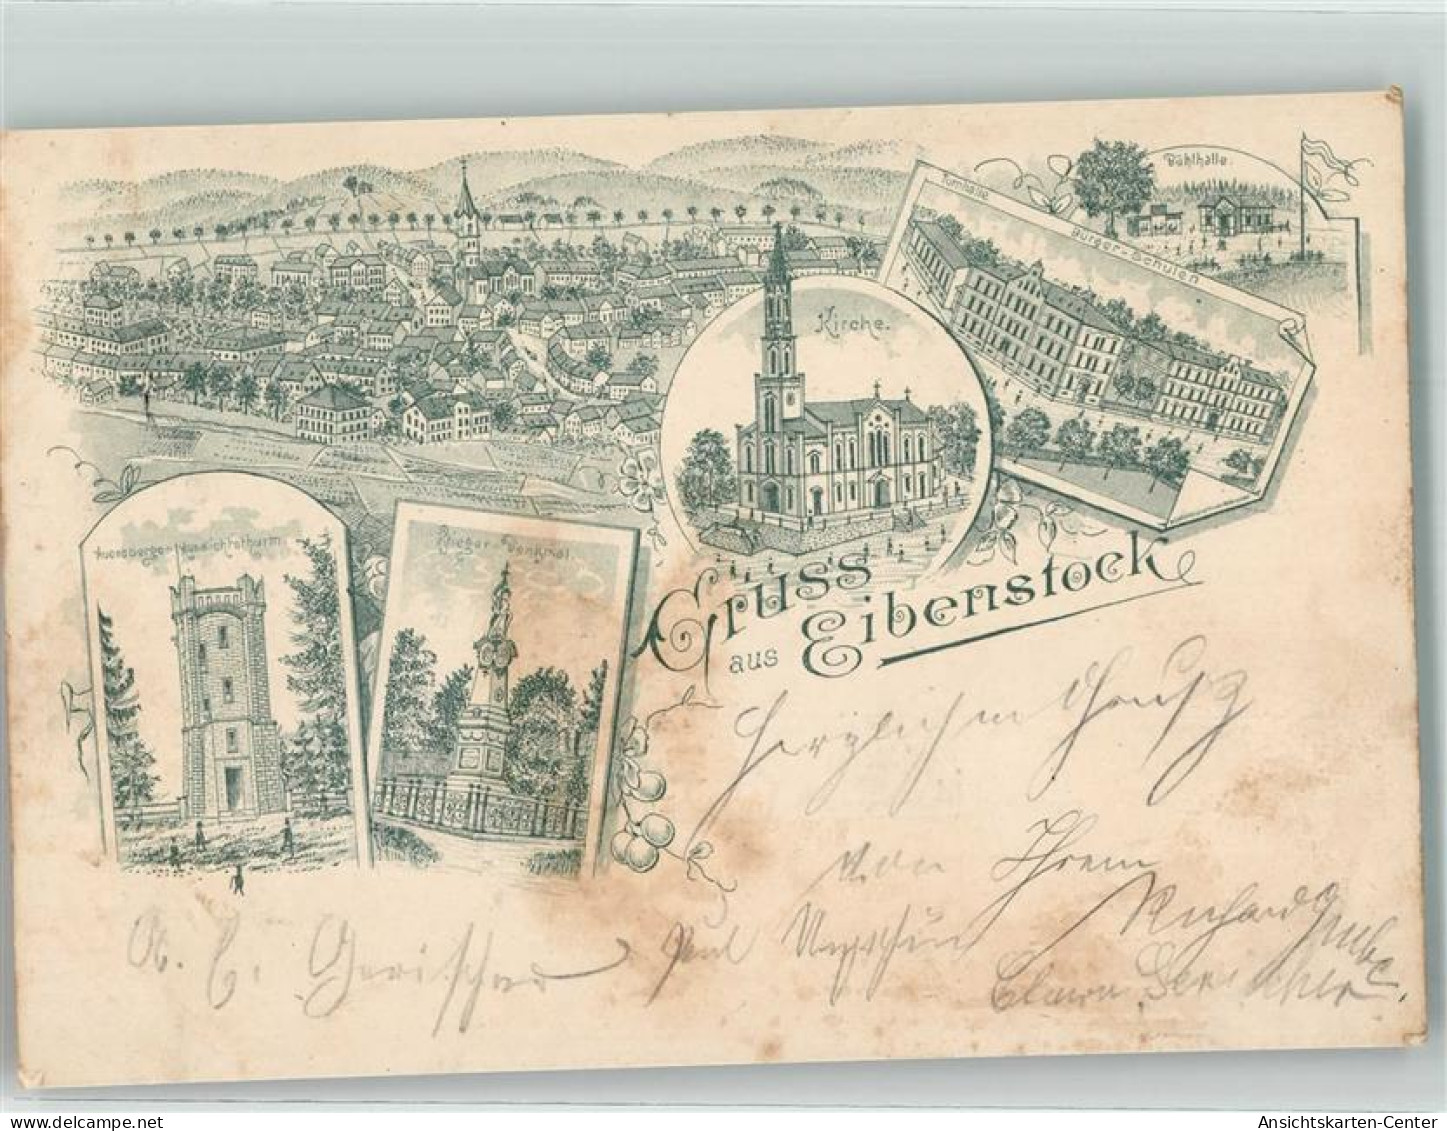 Bühlhalle.
Turnhalle
Bürger-Schulen
Kirche.
Auersberger Aussichtsthurm.
Krieger-Denkmal.
Gruss
aus Eibenstock
Herzlichen Gruß
von Ihrem
Richard
A. E. Gerischer
Paul
Gerischer
Ansichtskarten-Center